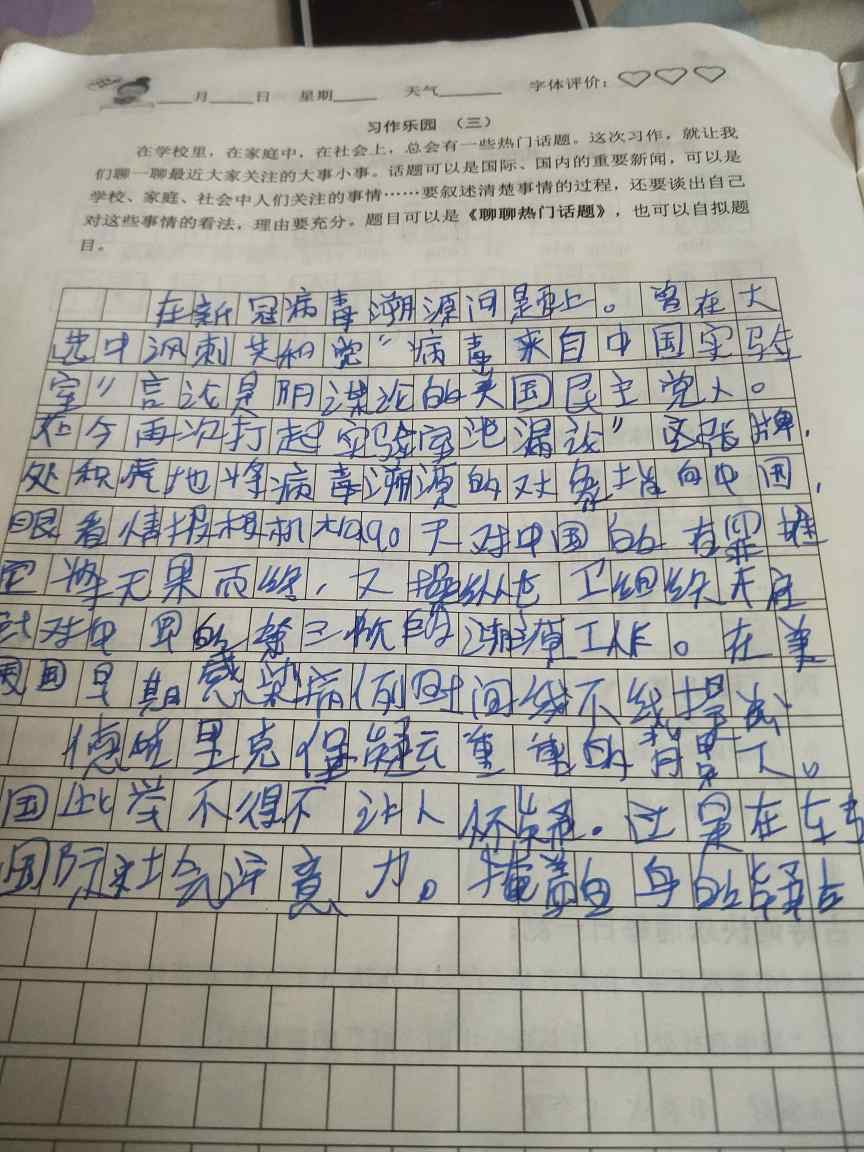 月 日 星期 天气 字体评价：
习作乐园 （三）
在学校里，在家庭中，在社会上，总会有一些热门话题。这次习作，就让我
们聊一聊最近大家关注的大事小事。话题可以是国际、国内的重要新闻，可以是
学校、家庭、社会中人们关注的事情……要叙述清楚事情的过程，还要谈出自己
对这些事情的看法，理由要充分。题目可以是《聊聊热门话题》，也可以自拟题
目。
在新冠病毒溯源问题上。曾在大
选中讽刺共和党“病毒来自中国实验
室”言论是阴谋论的美国民主党人。
如今再次打起实验室泄漏论”这张牌，
处积虑地将病毒溯源的对象指向中国，
眼看情报机 90天对中国的有罪推
定将无果而终，又操纵世卫组织 在
针对中国的第二阶段溯源工作。在美
国早期感染病例时间线不线提
德特里克堡疑云重重的背景下。
国此举不得不让人怀疑。这是在
国际社会注意力。掩盖自身的